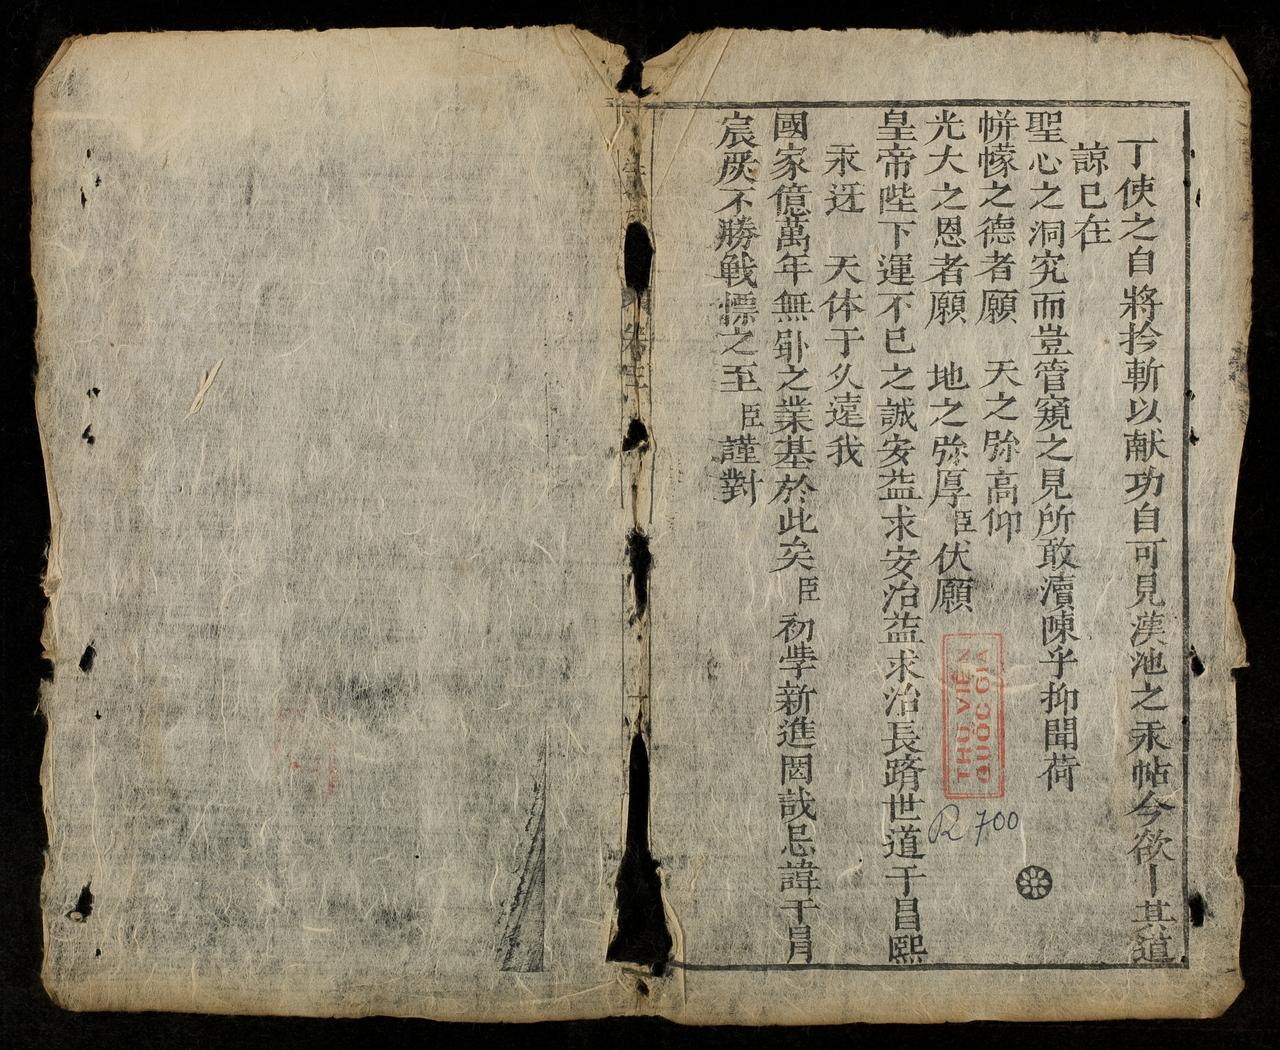 丁使之自將扲斬以献功自可見漢池之永帖今欲丨其道
諒已在
聖心之洞究而豈管窺之見所敢瀆陳乎抑聞荷
帡幪之德者願 天之弥高仰
光大之恩者願 地之弥厚臣伏願
皇帝陛下運不已之誠安益求安治益求治長躋世道于昌熙
永迓 天体于久遠我
國家億萬年無卧之業基於此矣臣初學新進罔哉忌諱干冒
宸扆不勝戰慄之至臣謹對
卷三
THƯ VIỆN
QUỐC GIA
R 700